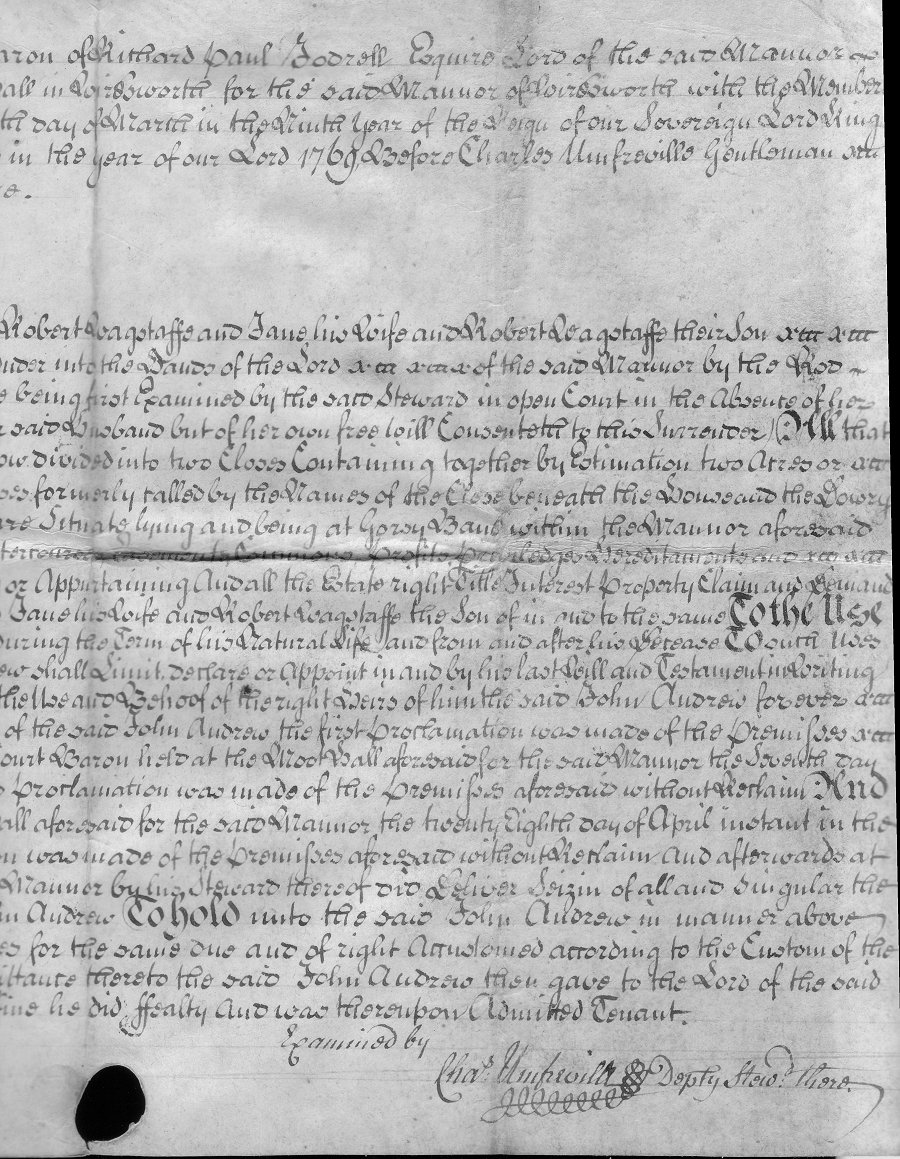 aron of Richard Paul Jodrell Esquire Lord of the said Mannor
all in Wirksworth for the said Mannor of Wirksworth with the Members
th day of March in the Ninth Year of the Reign of our Sovereign Lord King
in the year of our Lord 1769 Before Charles Umfreville Gentleman
re.
Robert Wagstaffe and Jane his Wife and Robert Wagstaffe their Son
nder into the Hands of the Lord of the said Mannor by the Rod
e being first Examined by the said Steward in open Court in the Absence of her
r said Husband but of her own free Will Consenteth to this Surrender) All that
ow divided into two Closes Containing together by Estimation two Acres or
ses formerly called by the Names of the Close beneath the House and the Lowry
are Situate lying and being at Gorsy Bank within the Mannor aforesaid
Commons Profits Priviledges Hereditaments and
or Appurtaining And all the Estate right Title Interest Property Claim and Demand
Jane his Wife and Robert Wagstaffe the Son of in and to the same To the Use
during the Term of his Natural Life and from and after his Decease To such Uses
ew shall Limit, declare or Appoint in and by his last Will and Testament in Writing
the Use and Behoof of the right Heirs of him the said John Andrew for ever
of the said John Andrew the first Proclamation was made of the Premisses
Court Baron held at the Moot Hall aforesaid for the said Mannor the Seventh day
Proclamation was made of the Premisses aforesaid without Reclaim And
all aforesaid for the said Mannor the twenty Eighth day of April instant in the
on was made of the Premisses aforesaid without Reclaim And afterwards at
Mannor by his Steward thereof did Deliver Seizin of all and Singular the
hn Andrew To hold unto the said John Andrew in manner above
es for the same due and of right Accustomed according to the Custom of the
ittance thereto the said John Andrew then gave to the Lord of the said
ine he did ffealty And was thereupon Admitted Tenant.
Examined by
Chas. Umfreville Depty Stewd. there.